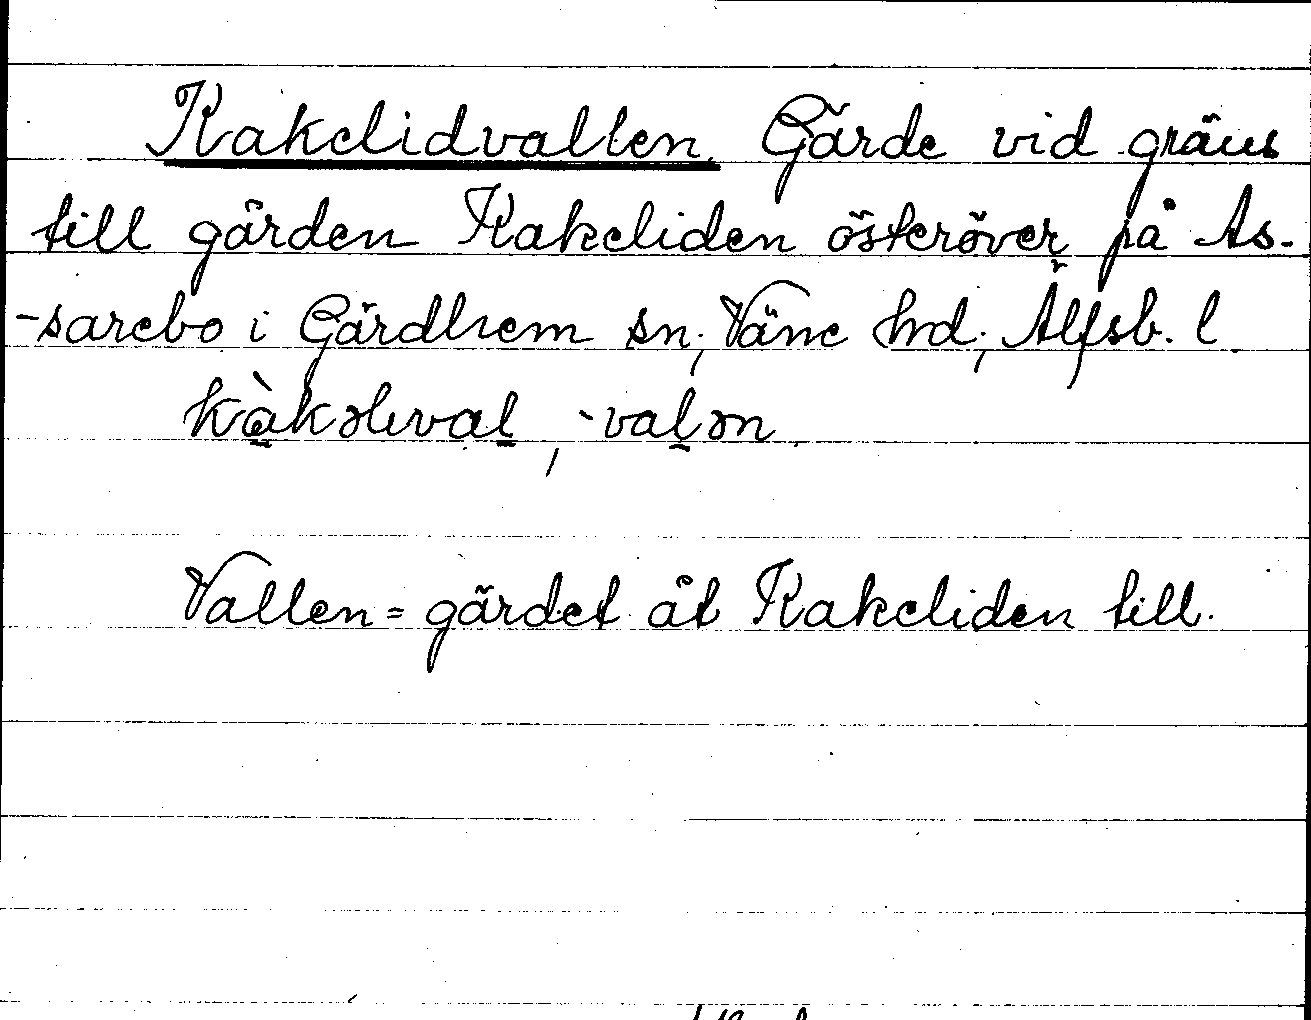 Kakelidvallen. Gärde vid gräns
till gården Kakeliden österöver på As-
-sarebo i Gärdhem sn, Väne hd, Älfsb. l.
kàkəlɩval, -valən.
Vallen = gärdet åt Kakeliden till.